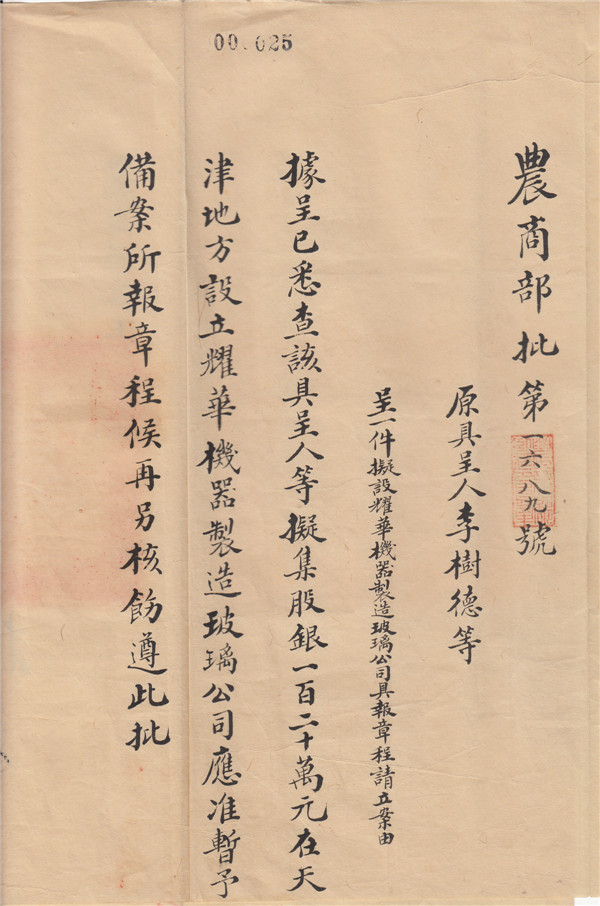 00.025
農商部批第一六八九號
原具呈人李樹德等
呈一件擬設耀華機器製造玻璃公司具報章程請立案由
據呈已悉查該具呈人等擬集股銀一百二十萬元在天
津地方設立耀華機器製造玻璃公司應准暫予
備案所報章程候再另核飭遵此批